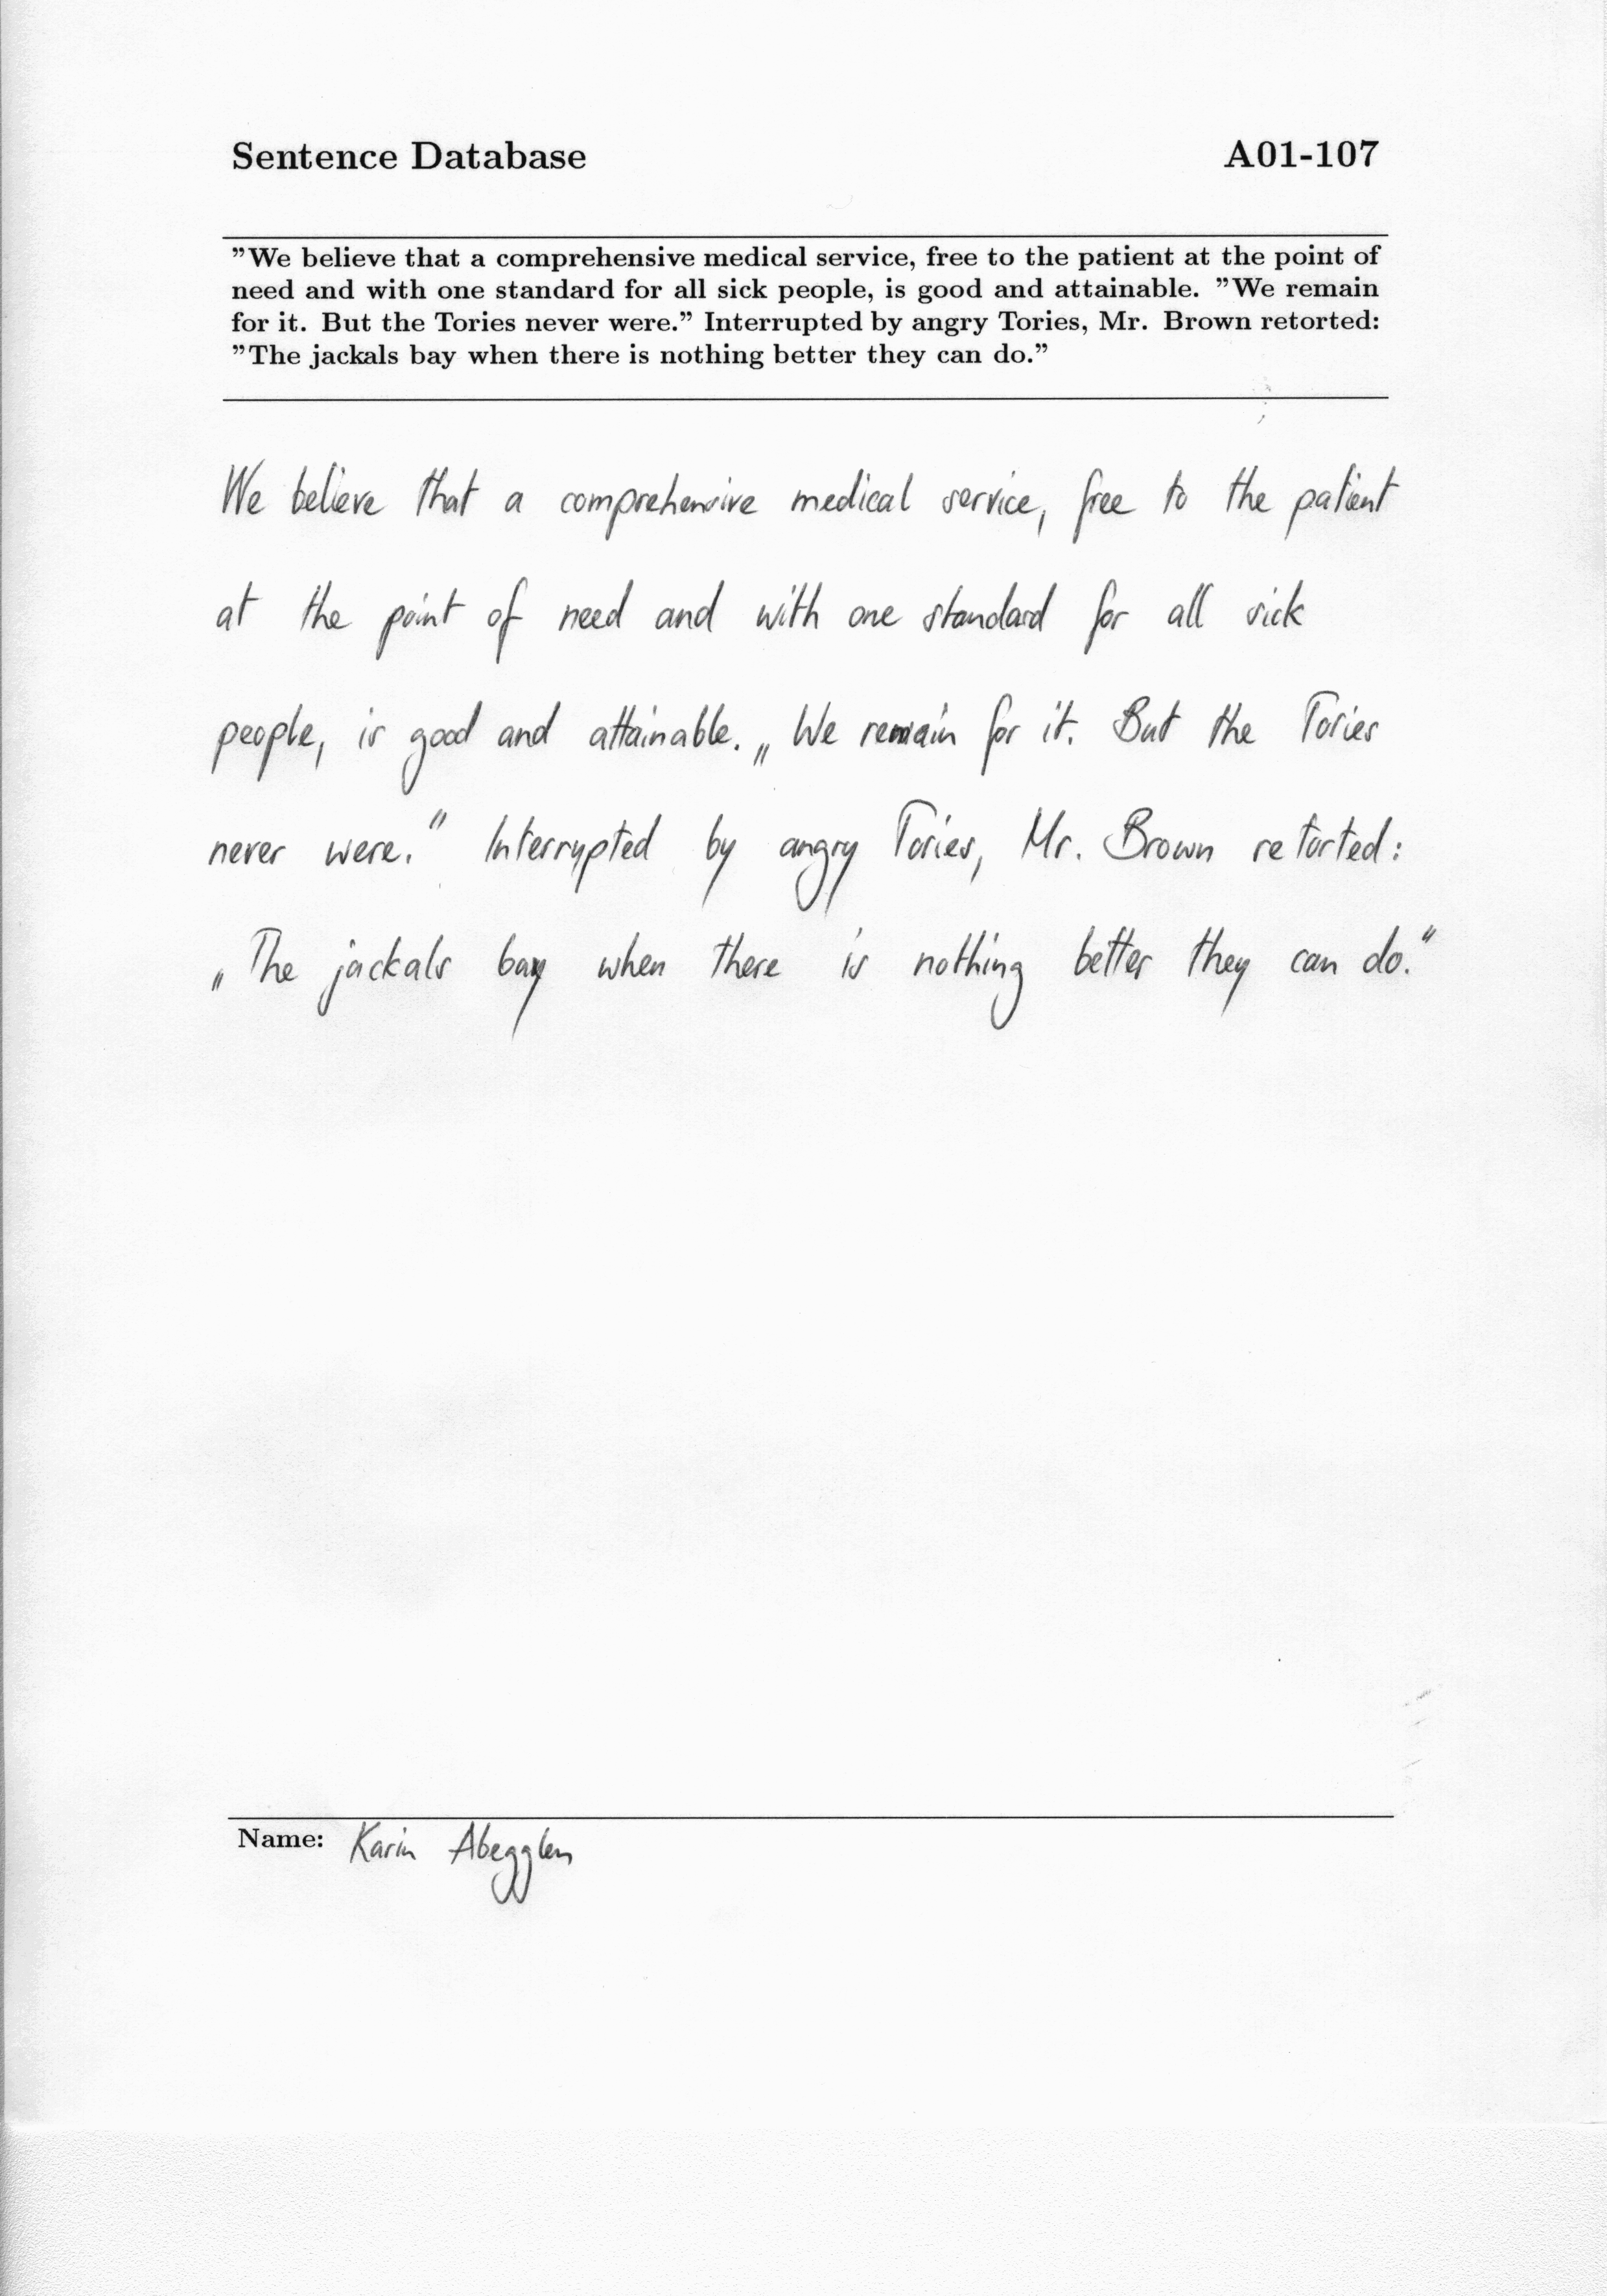 Sentence Database A01-107
"We believe that a comprehensive medical service, free to the patient at the point of
need and with one standard for all sick people, is good and attainable. "We remain
for it. But the Tories never were." Interrupted by angry Tories, Mr. Brown retorted:
"The jackals bay when there is nothing better they can do."
We believe that a comprehensive medical service, free to the patient
at the point of need and with one standard for all sick
people, is good and attainable. „We remain for it. But the Tories
never were." Interrupted by angry Tories, Mr. Brown retorted:
„The jackals bay when there is nothing better they can do."
Name: Karin Abegglen